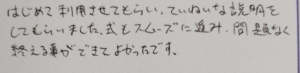 はじめて利用させてもらい、ていねいな説明を
してもらいました。式もスムーズに進み、問題なく
終える事ができてよかったです。